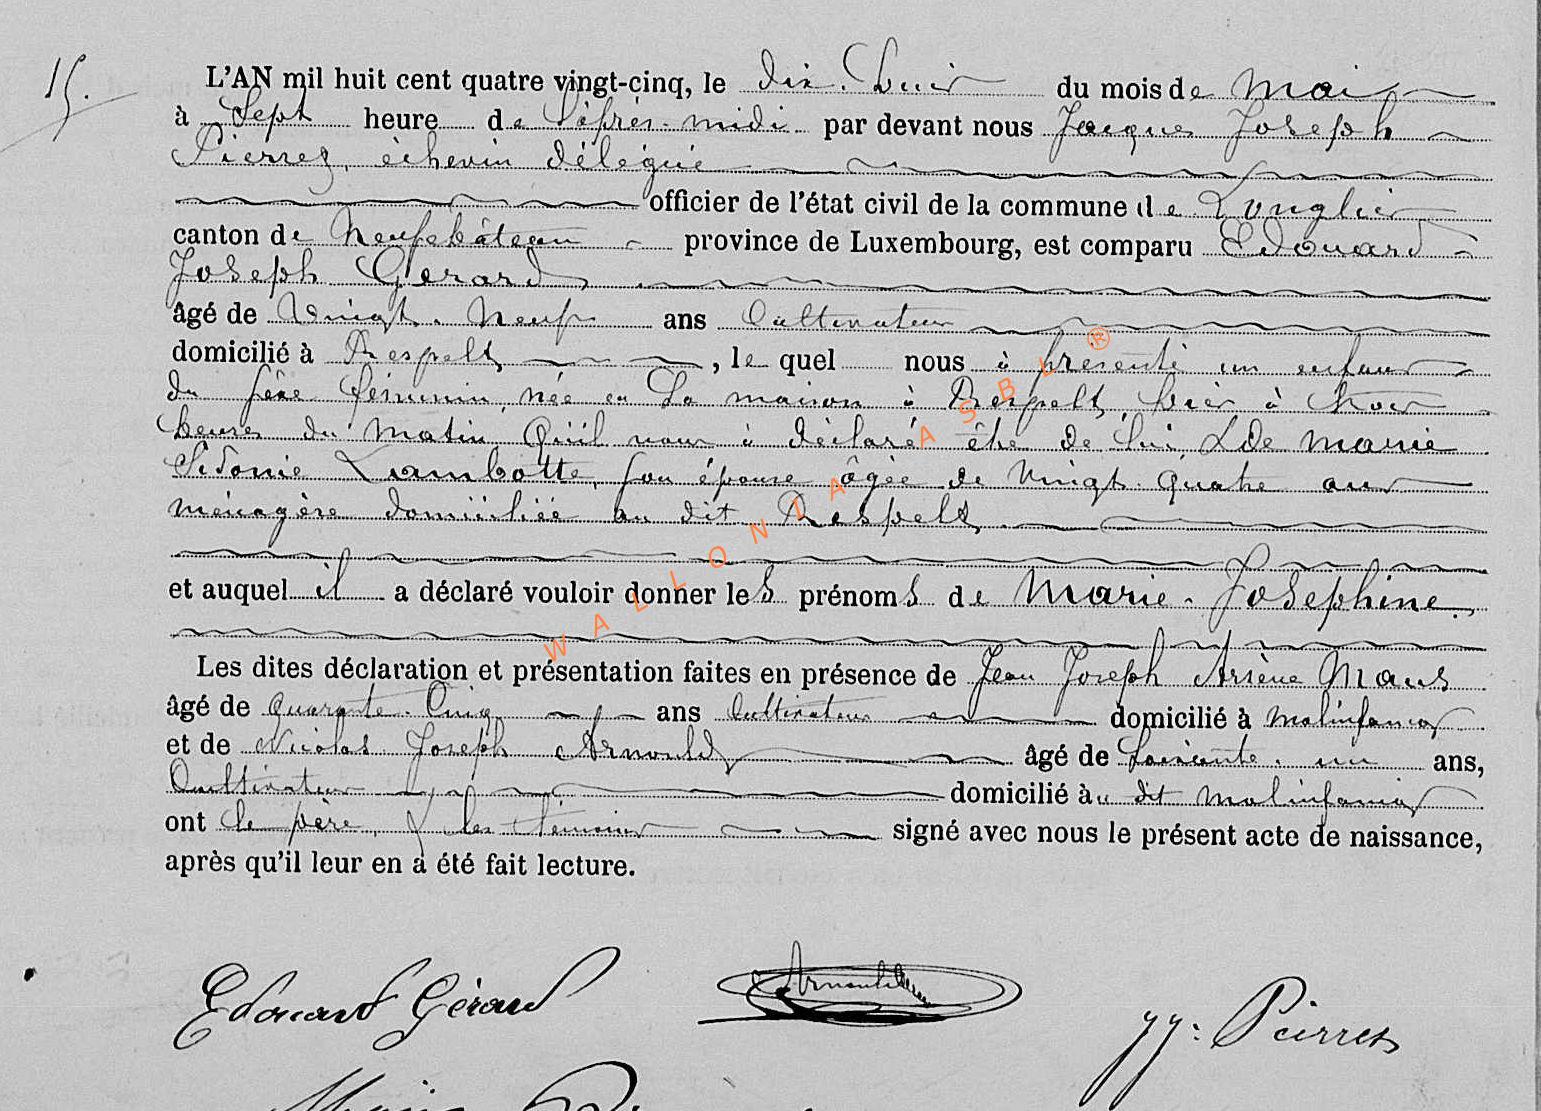 15.
L'AN mil huit cent quatre vingt-cinq, le dix-huit du mois de Mai
à Sept heure de l'après-midi par devant nous Jacques Joseph
Pierret, échevin délégué
officier de l'état civil de la commune de Longlier
canton de Neufchâteau province de Luxembourg, est comparu Edouard
Joseph Gérard
âgé de Vingt-Neuf ans Cultivateur
domicilié à Respelt, le quel nous à présenté un enfant
du sexe féminin, née en Sa maison à Respelt, hier à trois
heures du matin, Qu'il nous à déclaré être de Lui, & de Marie
Sidonie Lambotte, son épouse âgée de Vingt-quatre ans
ménagère domiciliée au dit Respelt
et auquel il a déclaré vouloir donner les prénoms de Marie-Joséphine.
Les dites déclaration et présentation faites en présence de Jean Joseph Arsène Maus
âgé de Quarante-Cinq ans Cultivateur domicilié à Molinfaing
et de Nicolas Joseph Arnould âgé de Soixante-un ans,
Cultivateur domicilié àu dit Molinfaing
ont Le père, & les témoins signé avec nous le présent acte de naissance,
après qu'il leur en a été fait lecture.
WALLONIA ASBL ®
Edouard Gérard Arnould JJ: Pierret